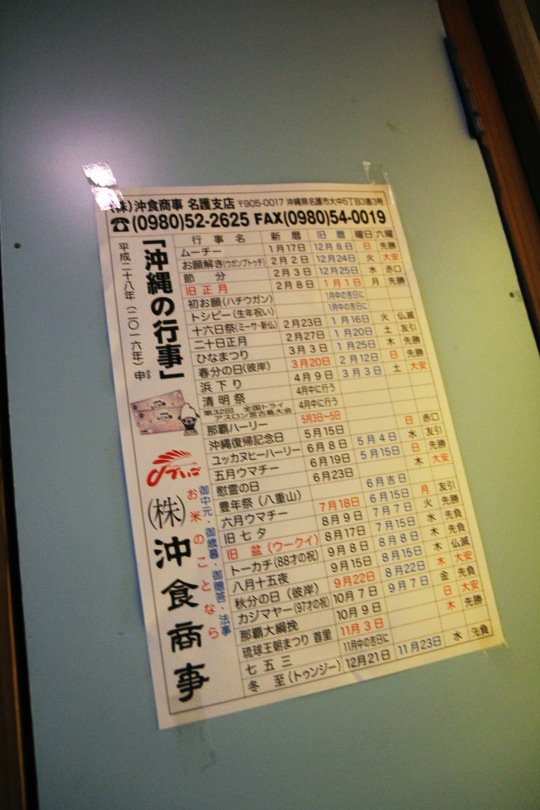 (株)沖食商事 名護支店 〒905-0017 沖縄県名護市大中5丁目3番3号
☎(0980)52-2625 FAX(0980)54-0019
平成二十八年(二〇一六年)申
「沖縄の行事」
行事名 新暦 旧暦 曜日 六曜
ムーチー 1月17日 12月8日 日 先勝
お願解き(ウガンブトゥチ) 2月2日 12月24日 火 大安
節分 2月3日 12月25日 水 赤口
旧正月 2月8日 1月1日 月 先勝
初お願(ハチウガン) 1月中の吉日に
トシビー(生年祝い) 1月中の吉日に
十六日祭(ミーサ・新仏) 2月23日 1月16日 火 仏滅
二十日正月 2月27日 1月20日 土 友引
ひなまつり 3月3日 1月25日 木 先勝
春分の日(彼岸) 3月20日 2月12日 日 先勝
浜下り 4月9日 3月3日 土 大安
清明祭 4月中に行う
第32回 全国トライアスロン宮古島大会 4月中に行う
那覇ハーリー 5月3日~5日
沖縄復帰記念日 5月15日 日 赤口
ユッカヌヒーハーリー 6月8日 5月4日 水 友引
五月ウマチー 6月19日 5月15日 日 先勝
慰霊の日 6月23日 木 大安
豊年祭(八重山) 6月吉日
六月ウマチー 7月18日 6月15日 月 友引
旧七夕 8月9日 7月7日 火 先勝
旧盆(ウークイ) 8月17日 7月15日 水 先負
トーカチ(88才の祝) 9月8日 8月8日 木 先負
八月十五夜 9月15日 8月15日 木 仏滅
秋分の日(彼岸) 9月22日 8月22日 木 大安
カジマヤー(97才の祝) 10月7日 9月7日 金 先負
那覇大綱挽 10月9日 日 大安
琉球王朝まつり 首里 11月3日 木 先勝
七五三 11月中の吉日に
冬至(トゥンジー) 12月21日 11月23日 水 先負
御中元・御歳暮・御贈答・法事
お米のことなら
(株)沖食商事